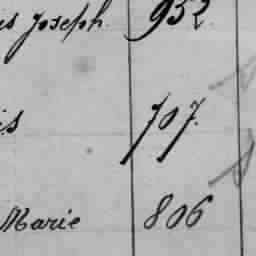 is Joseph. 952
is 707.
Marie 806